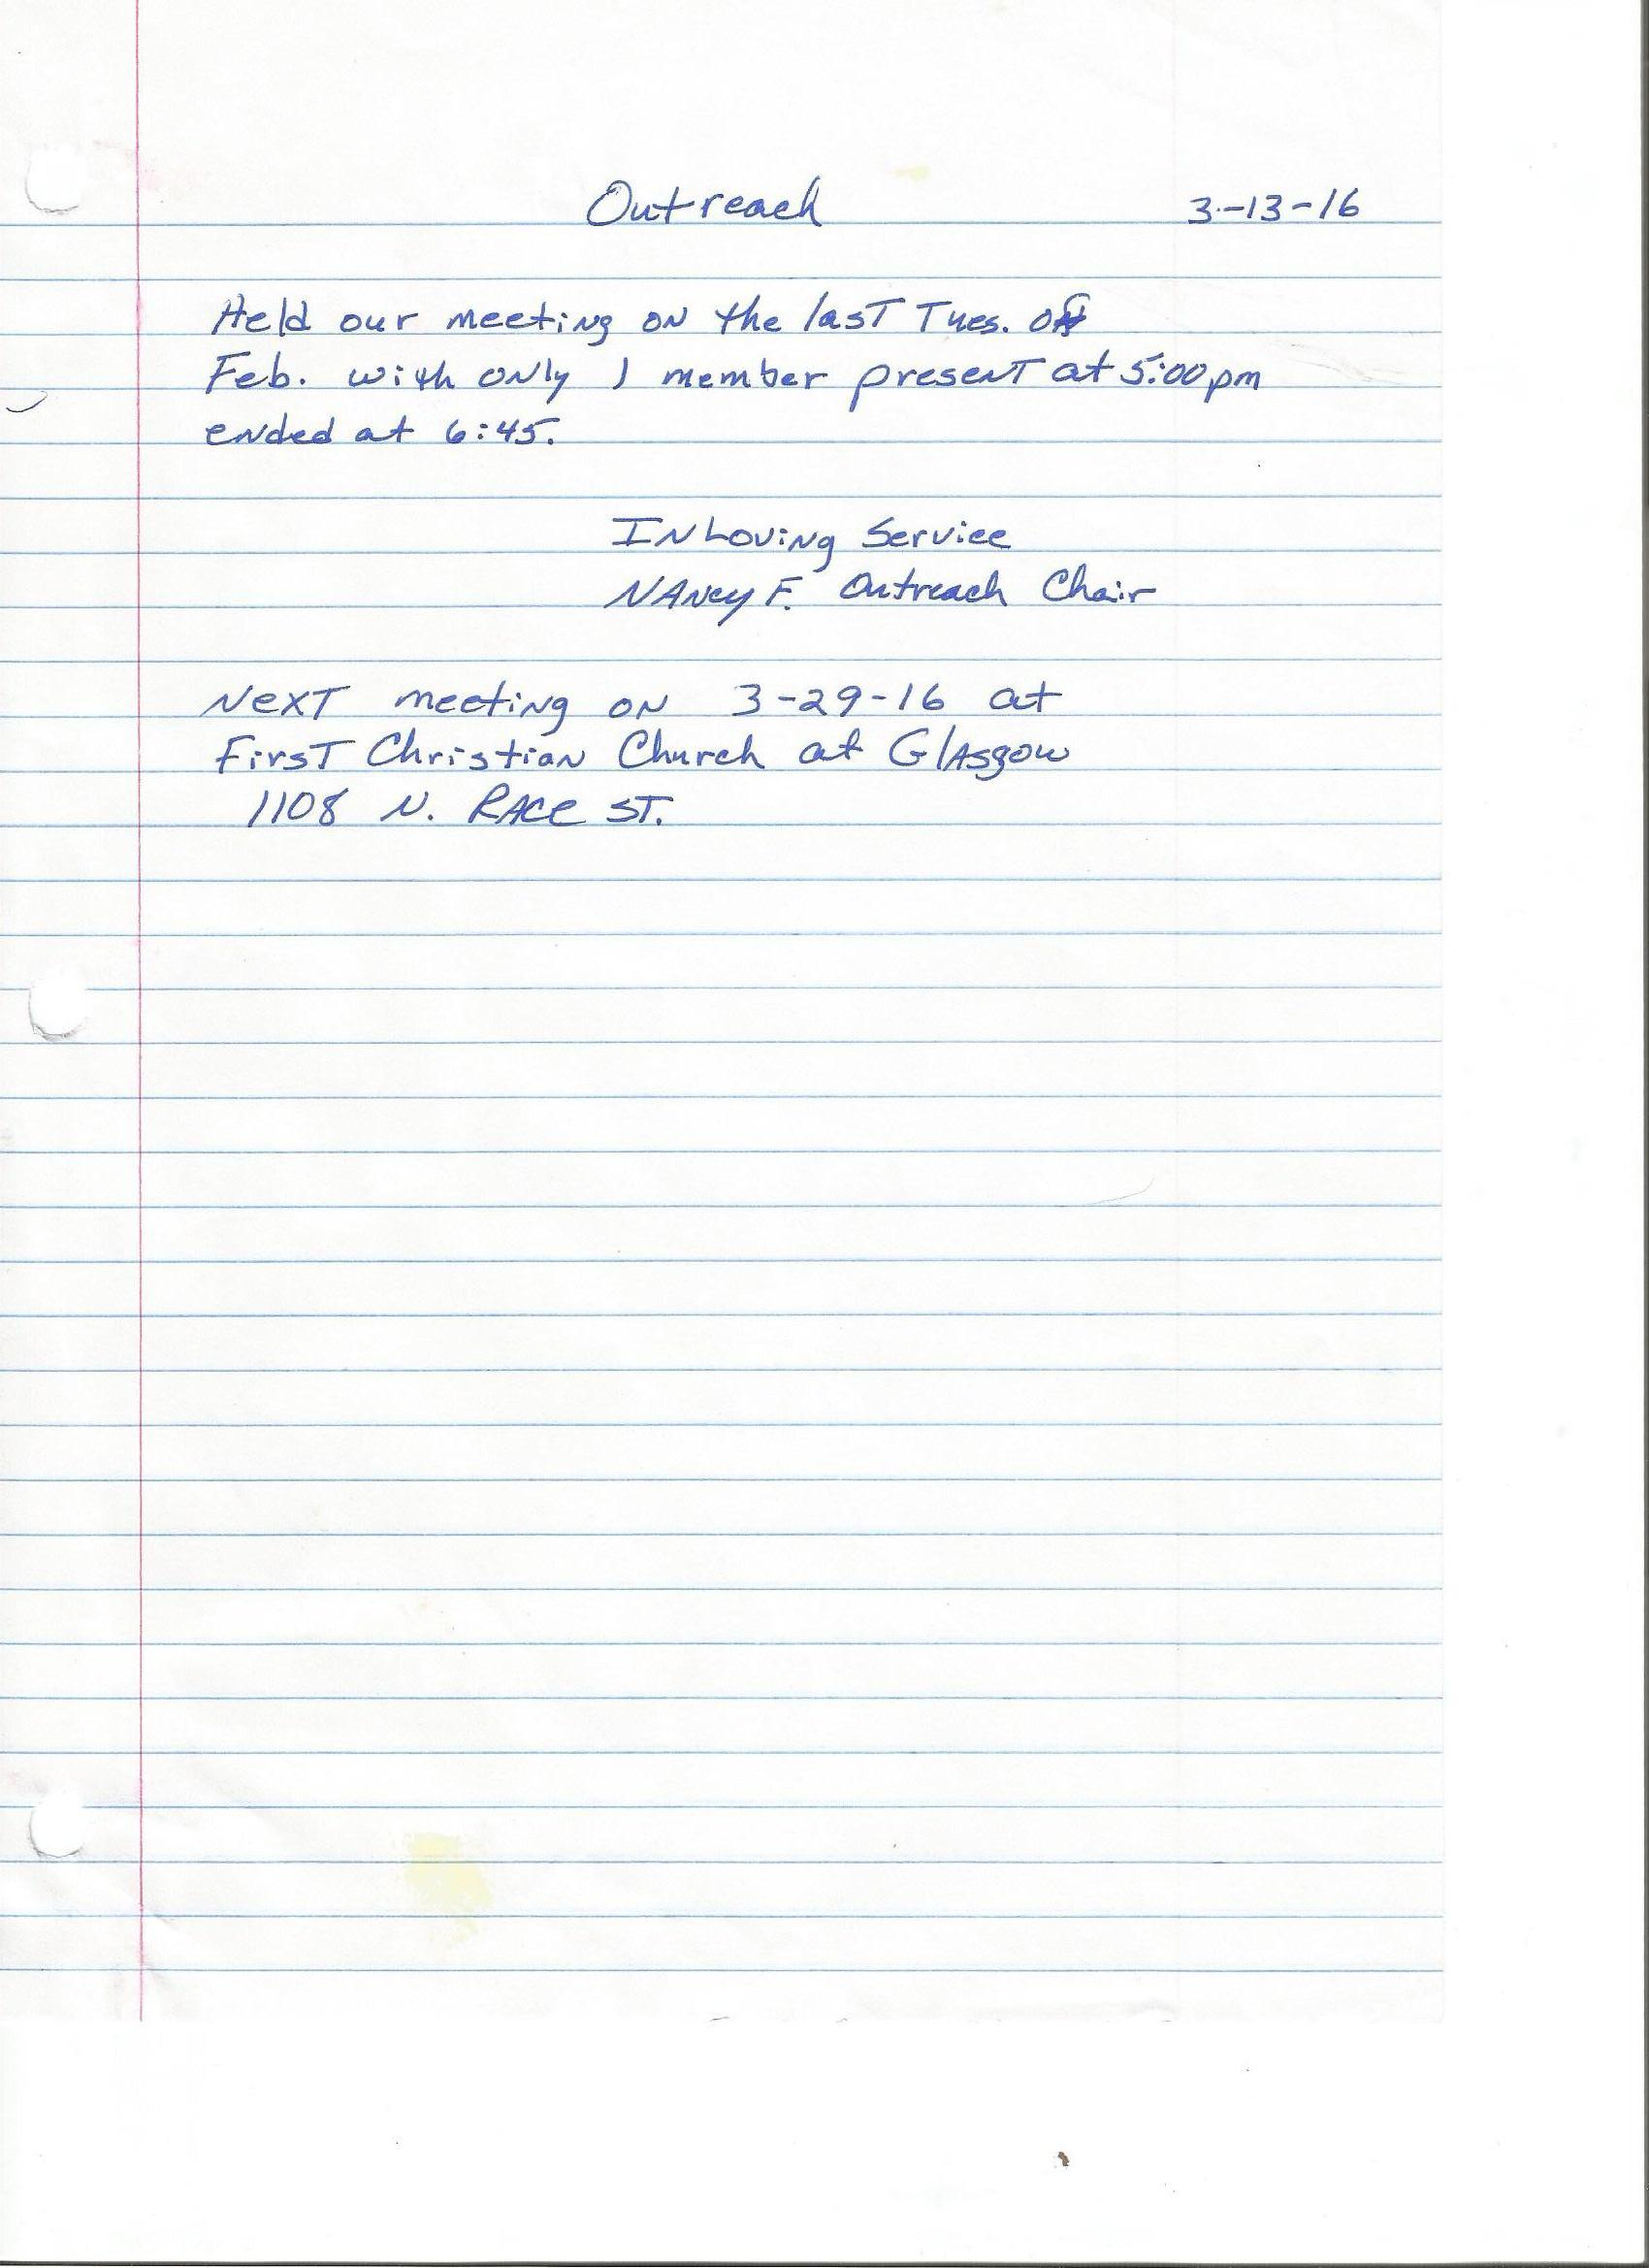 Outreach 3-13-16
Held our meeting on the last Tues. of
Feb. with only 1 member present at 5:00pm
ended at 6:45.
In Loving Service
Nancy F. Outreach Chair
Next meeting on 3-29-16 at
First Christian Church at Glasgow
1108 N. Race St.